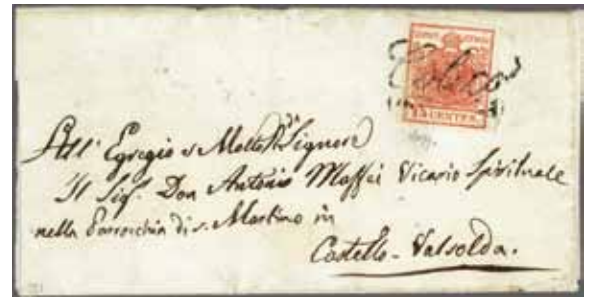 Colico
15 CENTES.
All' Egregio e Molto R.di Signore
Il Sig. Don Antonio Maffei Vicario Spirituale
nella Parrocchia di S. Martino in
Castello - Valsolda.